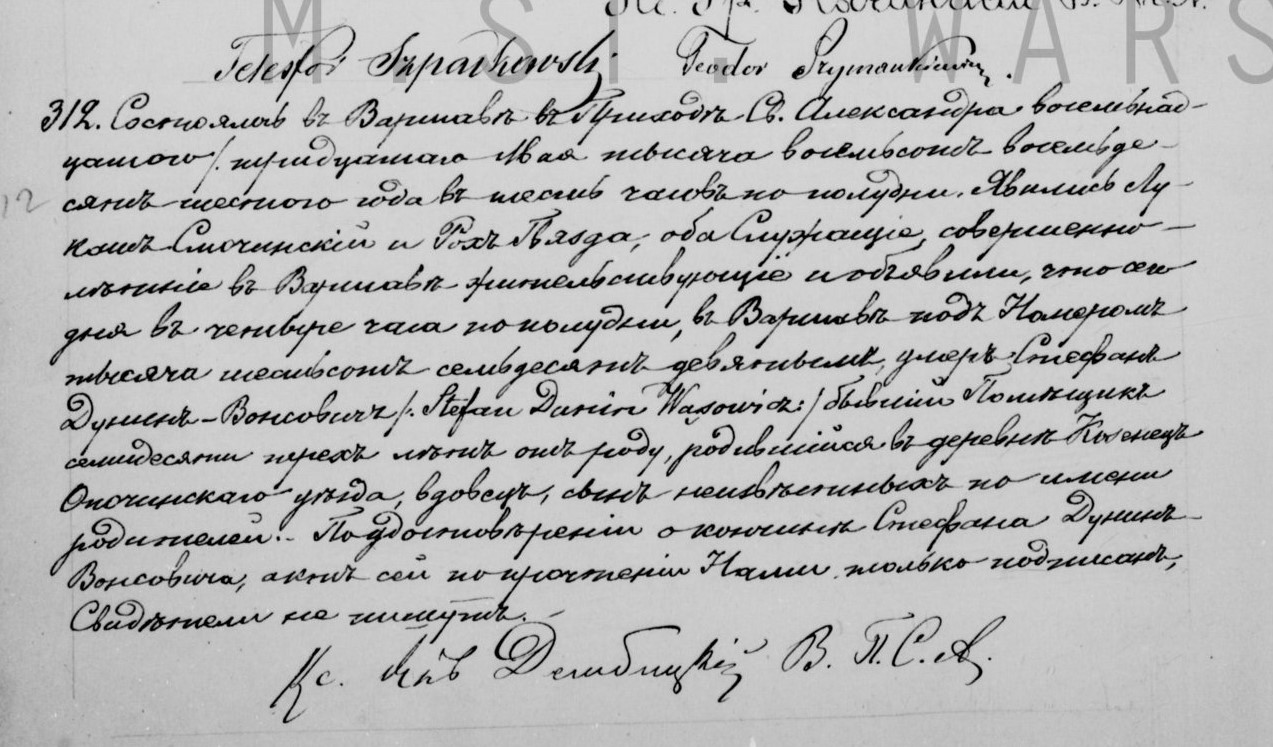 M ST. WARS
Telesfor Szpadkowski Teodor Szymankiewicz.
312. Состоялось въ Варшавѣ въ Приходѣ Св. Александра восемьнад-
цатого /: тридцатаго Мая тысяча восемьсотъ восемьде-
сятъ шестого года въ шесть часовъ по полудни. Явились Лу-
кашъ Смочинскій и Рохъ Гвязда, оба Служащіе, совершенно-
лѣтніе въ Варшавѣ жительствующіе и объявили, что сего
дня въ четыре часа по полудни, въ Варшавѣ подъ Номеромъ
тысяча шестьсотъ семьдесятъ девятымъ, умеръ Стефанъ
Дунинъ-Вонсовичъ /: Stefan Dunin Wąsowicz :/ бывшій Помѣщикъ
семидесяти трехъ лѣтъ отъ роду, родившійся въ деревнѣ Козенецъ
Опочинскаго уѣзда, вдовецъ, сынъ неизвѣстныхъ по имени
родителей. По удостовѣреніи о кончинѣ Стефана Дунинъ-
Вонсовича, актъ сей по прочтеніи Нами только подписанъ,
Свидѣтели не пишутъ.
Кс. Дембицкій В. П. С. А.
12